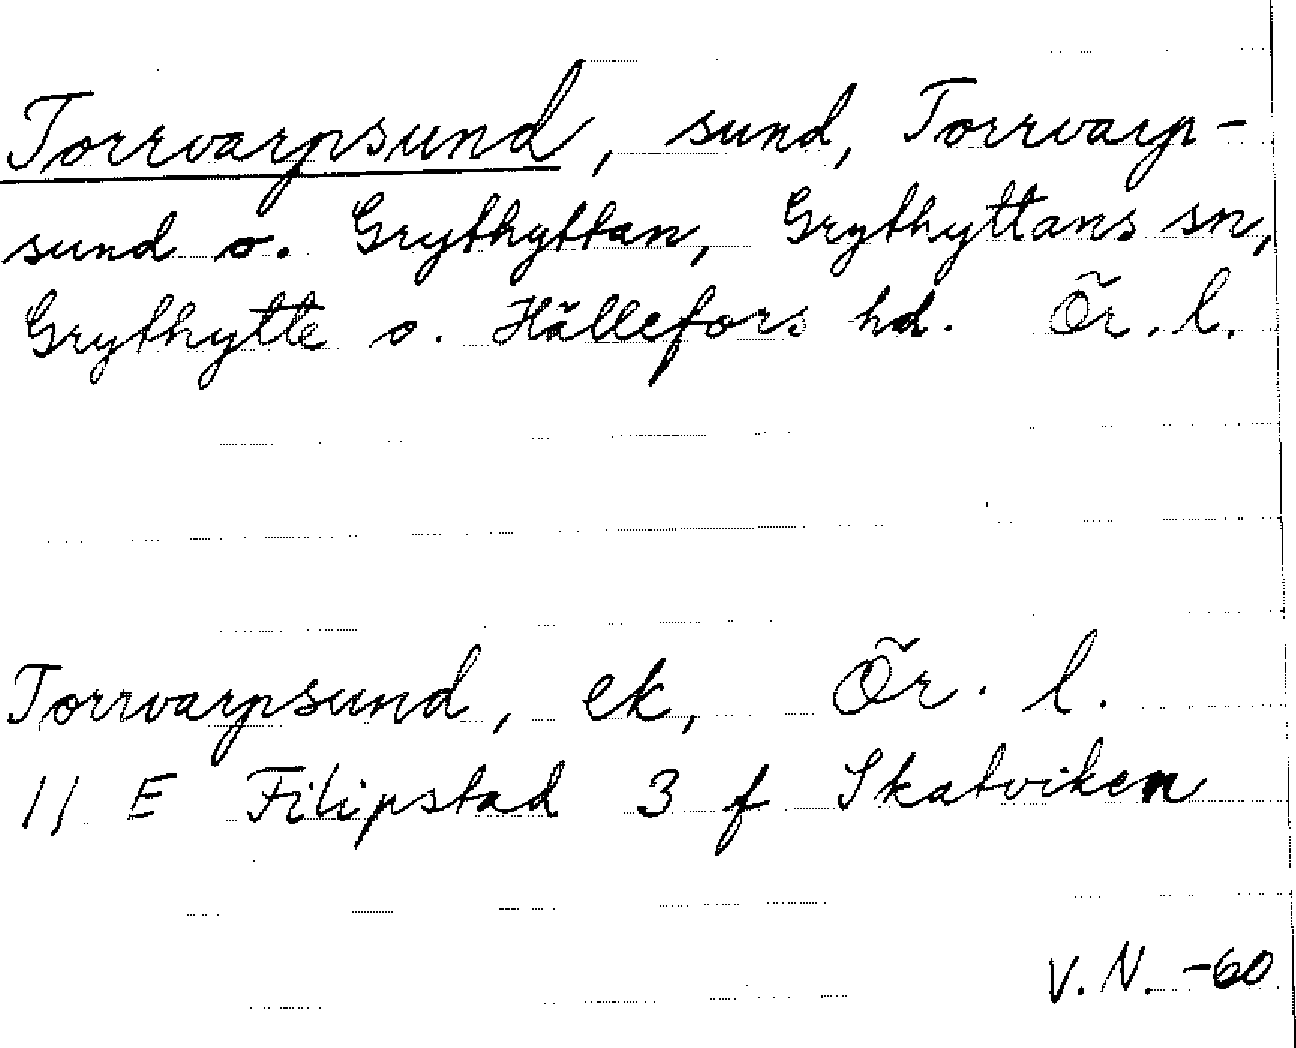 Torrvarpsund, sund, Torrvarp-
sund o. Grythyttan, Grythyttans sn,
Grythytte o. Hällefors hd. Ör. l.
Torrvarpsund, ek, Ör. l.
11 E Filipstad 3 f Skatviken
V. N. -60